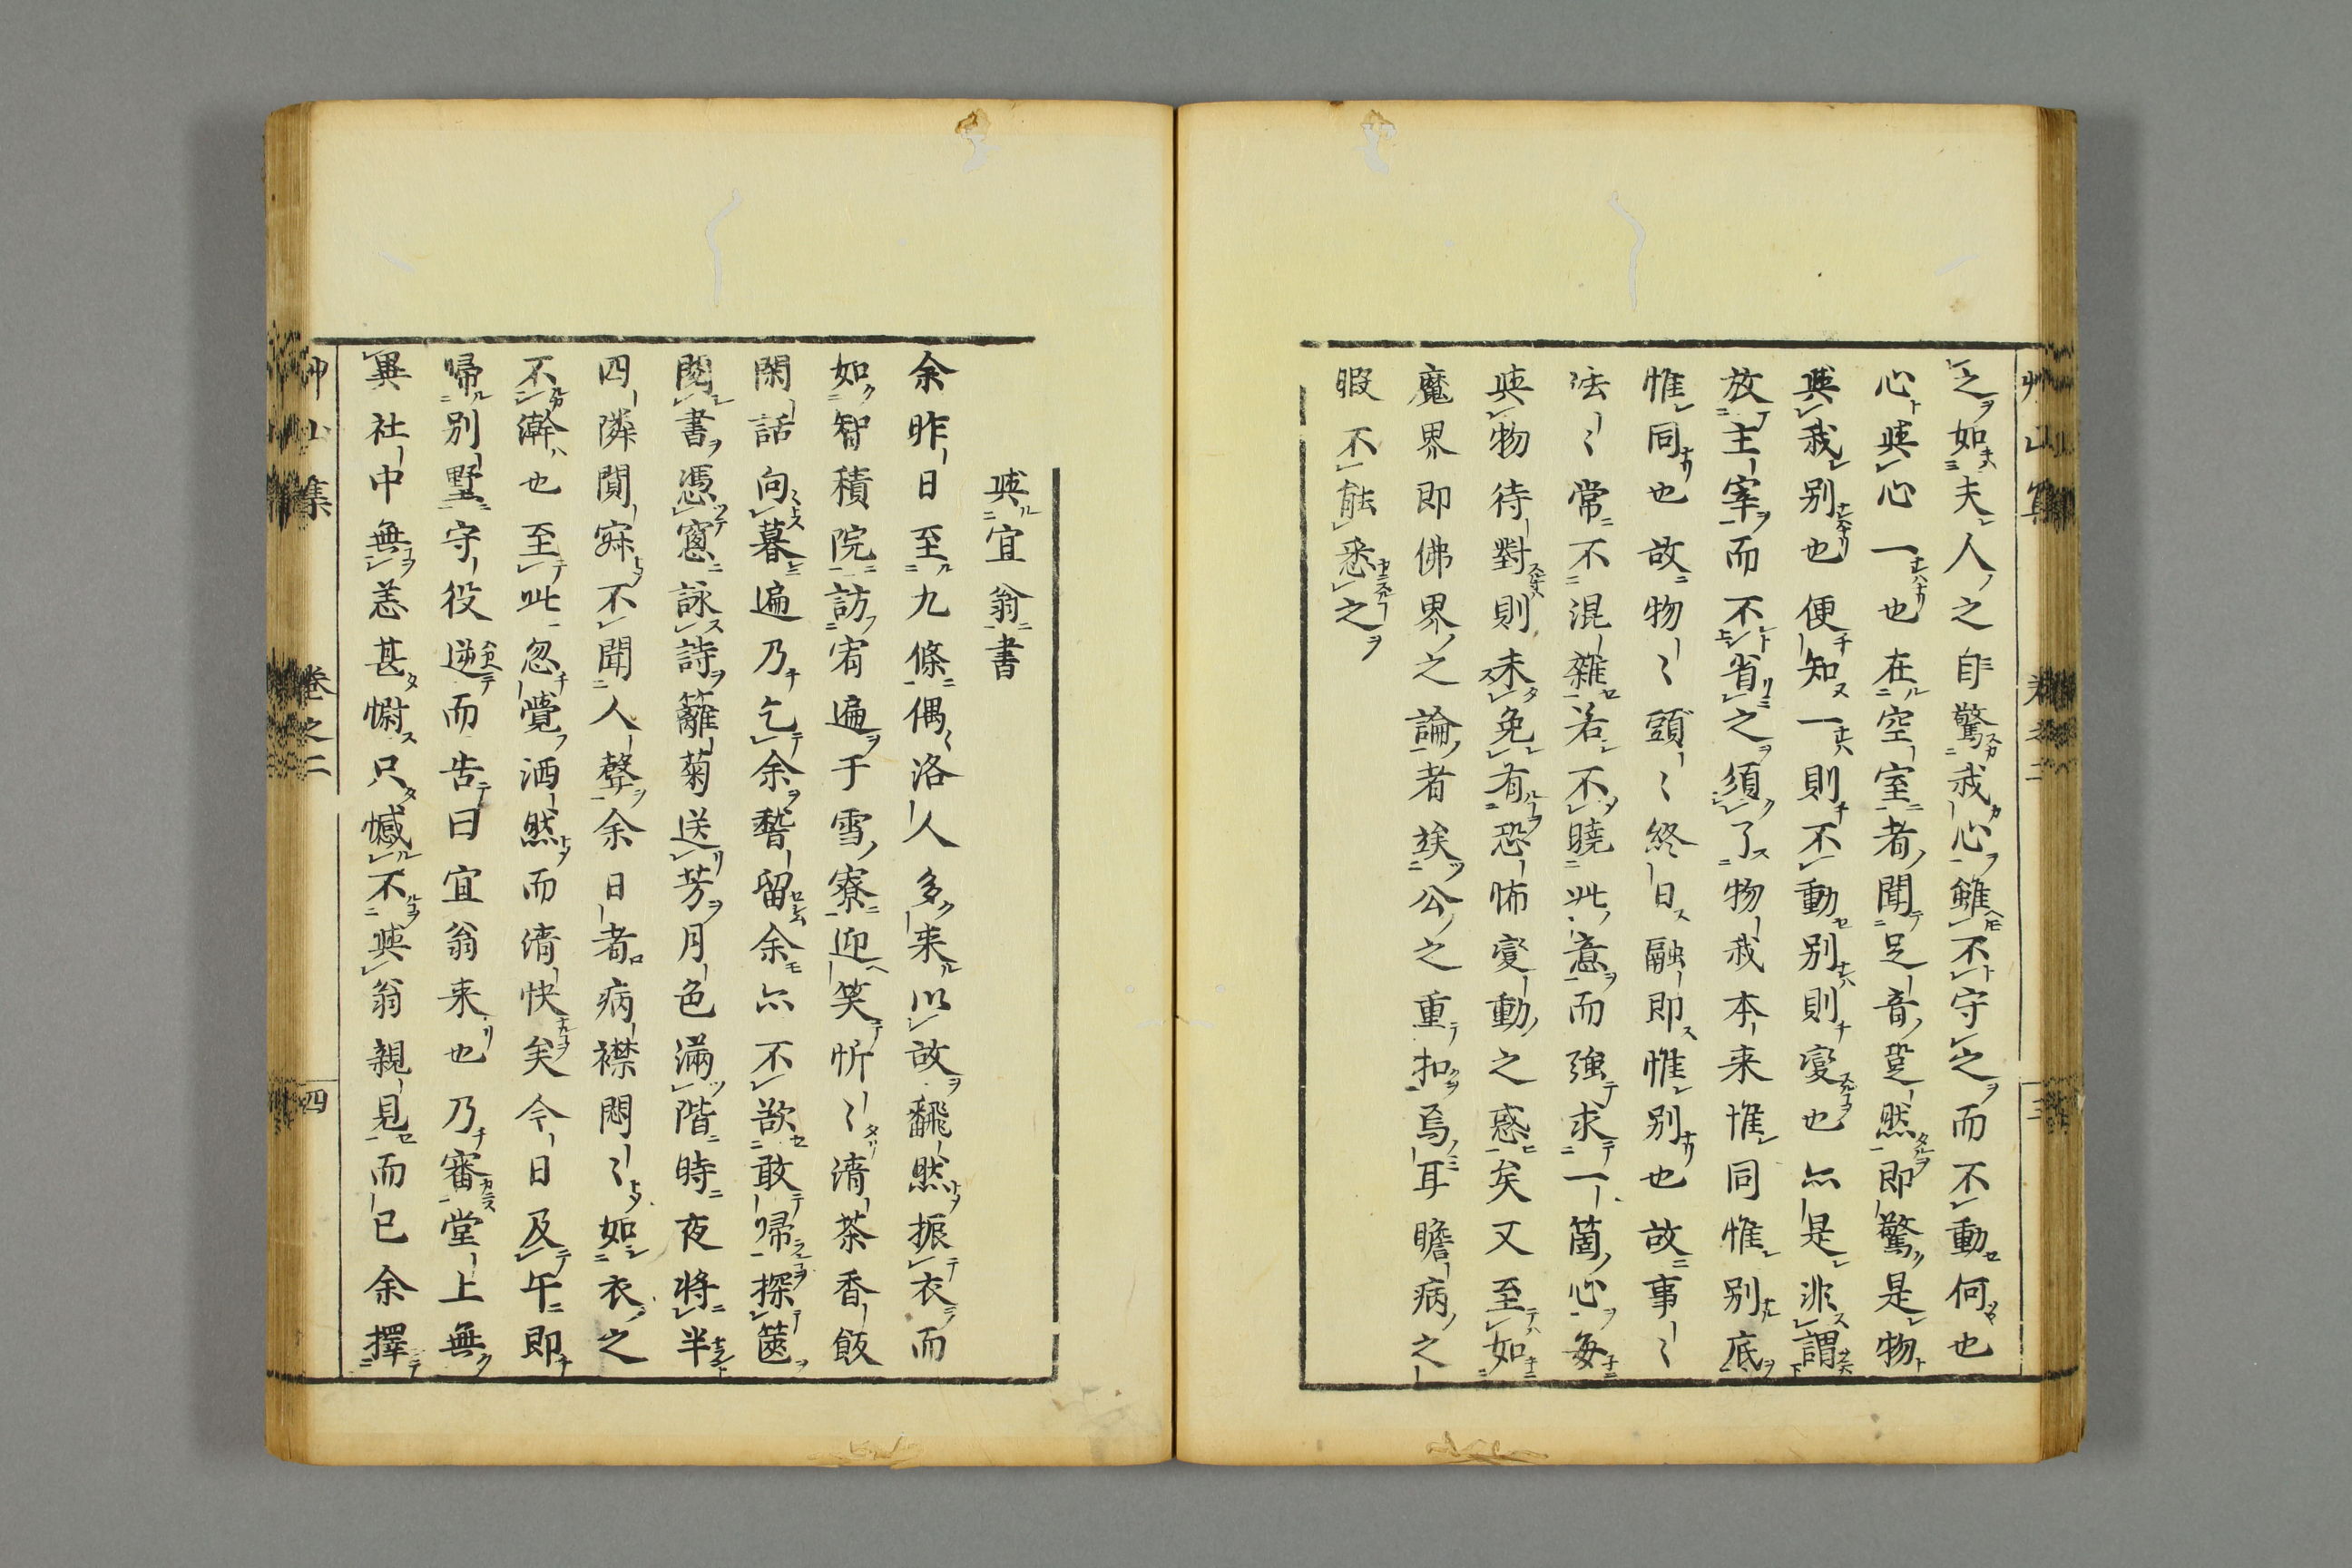 之如夫人之自驚我心雖不守之而不動何也
心與心一也在空室者聞足音跫然即驚是物
與我別也便知一則不動別則變也亦是非謂
放主宰而不省之須了物我本来惟同惟別底
惟同也故物〻頭〻終日融即惟別也故事〻
法〻常不混雜若不曉此意而強求一箇心每
與物待對則未免有恐怖變動之惑矣又至如
魔界即佛界之論者埃公之重扣焉耳瞻病之
暇不能悉之
與宜翁書
余昨日至九條偶洛人多来以故翻然振衣而
如智積院訪宥遍于雪寮迎笑忻〻清茶香飯
閑話向暮遍乃乞余暫留余亦不欲敢帰探篋
閲書憑窓詠詩籬菊送芳月色滿階時夜将半
四隣閴寂不聞人聲余日者病襟悶〻如衣之
不澣也至此忽覺洒然而清快矣今日及午即
帰別墅守役逆而告曰宜翁来也乃審堂上無
異社中無恙甚慰只憾不與翁親見而已余擇
艸山集 卷之二 四